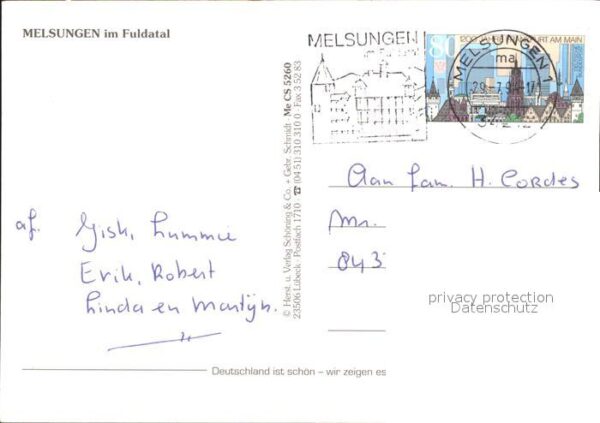 MELSUNGEN im Fuldatal
MELSUNGEN
im Fuldatal
80
1200 JAHRE FRANKFURT AM MAIN
MELSUNGEN 1
ma
34212
© Herst. u. Verlag Schöning & Co. + Gebr. Schmidt Me CS 5260
23506 Lübeck · Postfach 1710 · ☎ (04 51) 310 310 0 · Fax 3 52 83
Aan fam. H. Cordes
Mr.
843
af.
Gish, Lummie
Erik, Robert
Linda en Martijn.
privacy protection
Datenschutz
Deutschland ist schön – wir zeigen es